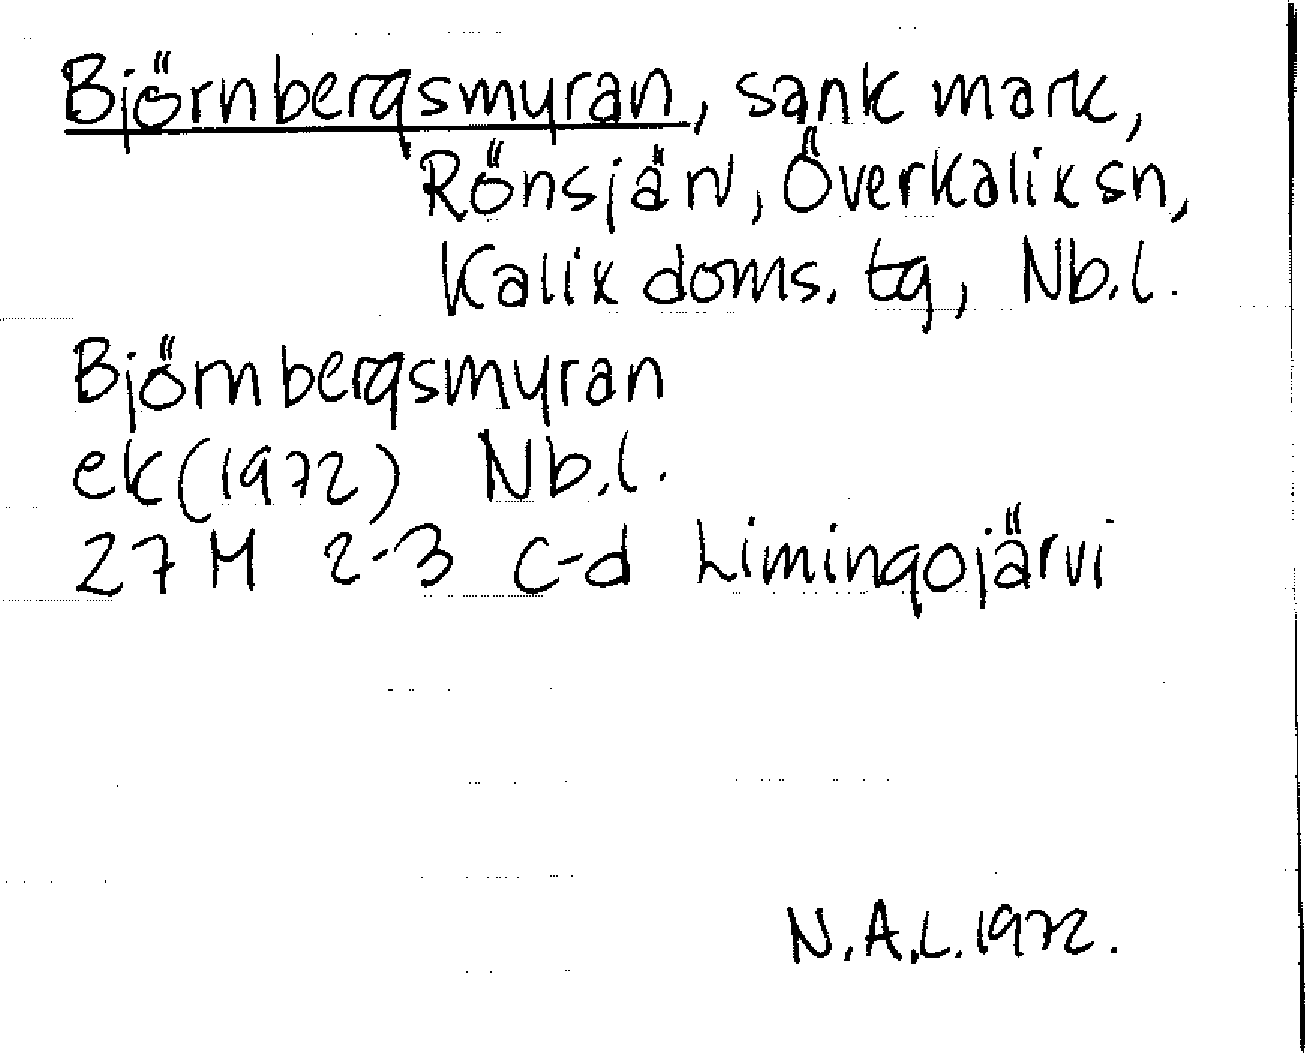 Björnbergsmyran, sank mark,
Rönsjärv, Överkalix sn,
Kalix doms. tg, Nb.l.
Björnbergsmyran
ek (1972) Nb.l.
27 M 2-3 c-d Limingojärvi
N.A.L. 1972.